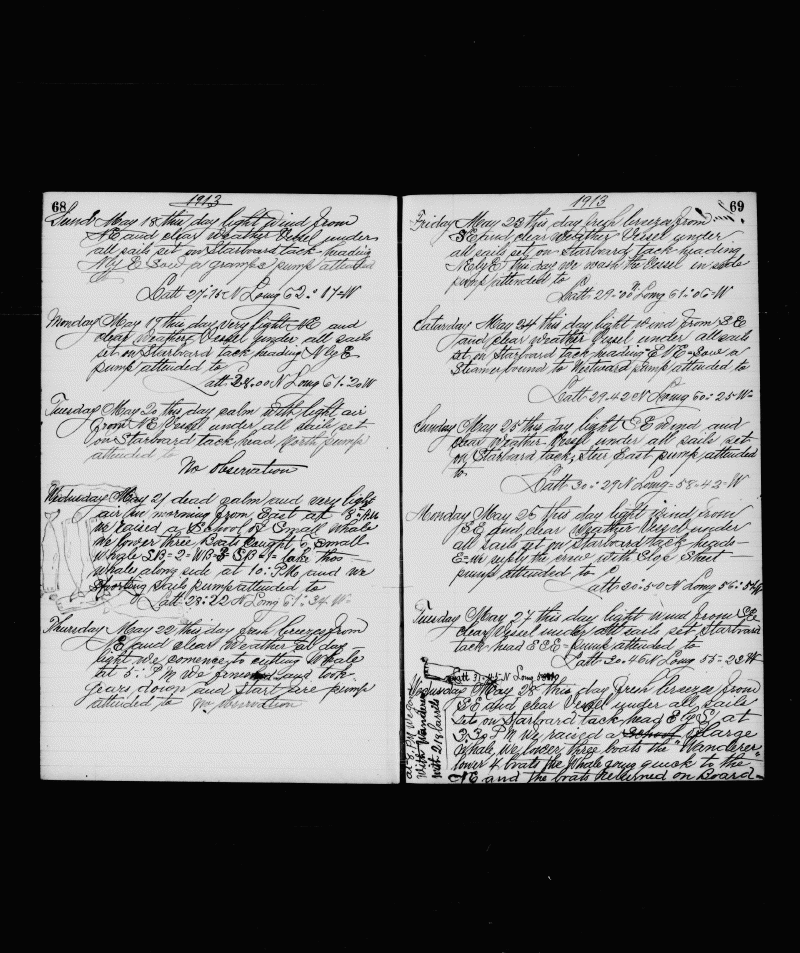 68
1913
Sund May 18 this day light Wind from
NE and clear Weather Vesel under
all sails set on Starboard tack heading
N by E Saw a grampus pump attended
Latt 27:15 N Long 62:17 W
Monday May 19 this day very light NE and
clear Weather Vessel under all sails
set on Starbord tack heading N by E
pump attended to
Latt 28.00 N Long 61:20 W
Tuesday May 20 this day calm with light air
from NE Vessel under all sails set
on Starbord tack head North pump
attended to
No Observation
Wednesday May 21 dead calm and very light
air in morning from East at 8:AM
we raised a School of Small Whale
We lower three Boats Caught 6 Small
Whale SB=2=WB=3 LB=1= take thos
whale along side at 10: PM and we
Shorting Sails pump attended to
Latt 28:22 N Long 61:34 W=
Thursday May 22 this day fresh breezes from
E and clear Weather at day
light we comence to cutting Whale
at 5: PM We and took
gears down and Start fire pump
attended to No Observation
1913
69
Friday May 23 this day fresh breezes from
SE and clear Weather Vessel under
all sails set on Starbord tack heading
NE by E this day we wash the Vessel in side
pump attended to
Latt 29=00 Long 61:06 W
Saturday May 24 this day light wind from SE
and clear Weather Vessel under all sails
set on Starbord tack heading ENE=Saw a
Steamer bound to Westward pump attended to
Latt 29.42 N Long 60:25 W=
Sunday May 25 this day light SE wind and
clear Weather Vessel under all sails set
on Starbord tack; Steer East pump attended
to
Latt 30:29 N Long=58.43=W
Monday May 26 this day light wind from
SE and clear Weather Vesel under
all sails set on Starbord tack heads=
E= we suply the crue with
pump attended to
Latt 30:50 N Long 56:54 W
Tuesday May 27 this day light wind from SE
clear Vessel under all sails set Starboard
tack head ESE= pump attended to
Latt 30.46 N Long 55=23 W
Latt 31.41 N Long
Wednesday May 28 this day fresh breezes from
SE and clear Vesel under all sails
set on Starbord tack head E by S at
3:30 PM We raised a School Large
Whale, we lower three boats the "Wanderer"
lower 4 boats the Whale going quick to the
NE and the boats Returned on Board=
at 8: PM We gam
With Wanderer
with 218 barrels